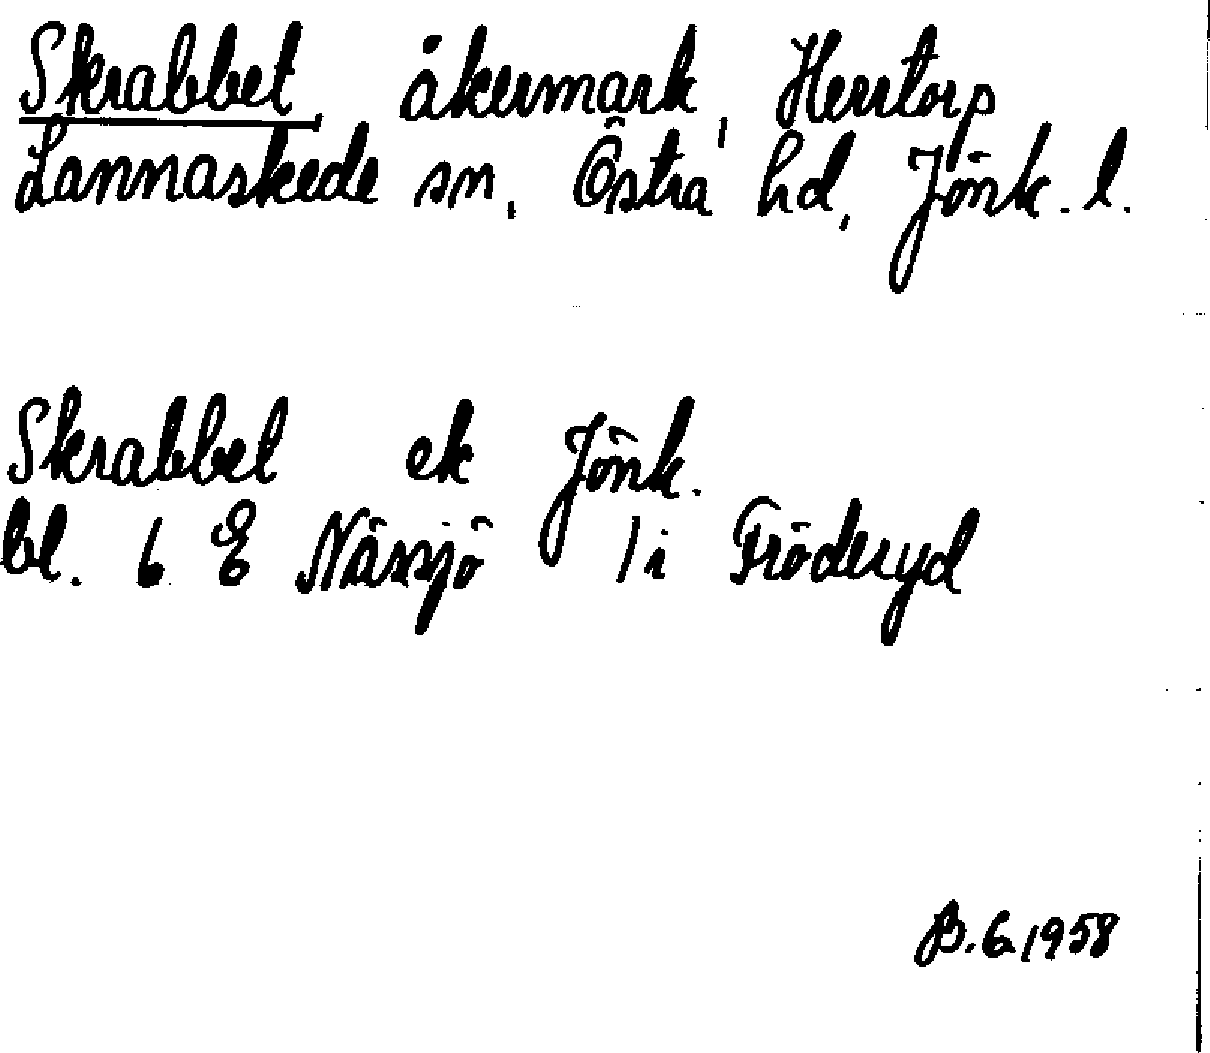 Skrabbet, åkermark, Herrtorp
Lannaskede sn, Östra hd, Jönk. l.
Skrabbet ek Jönk.
bl. 6 E Nässjö / i Fröderyd
B.G. 1958